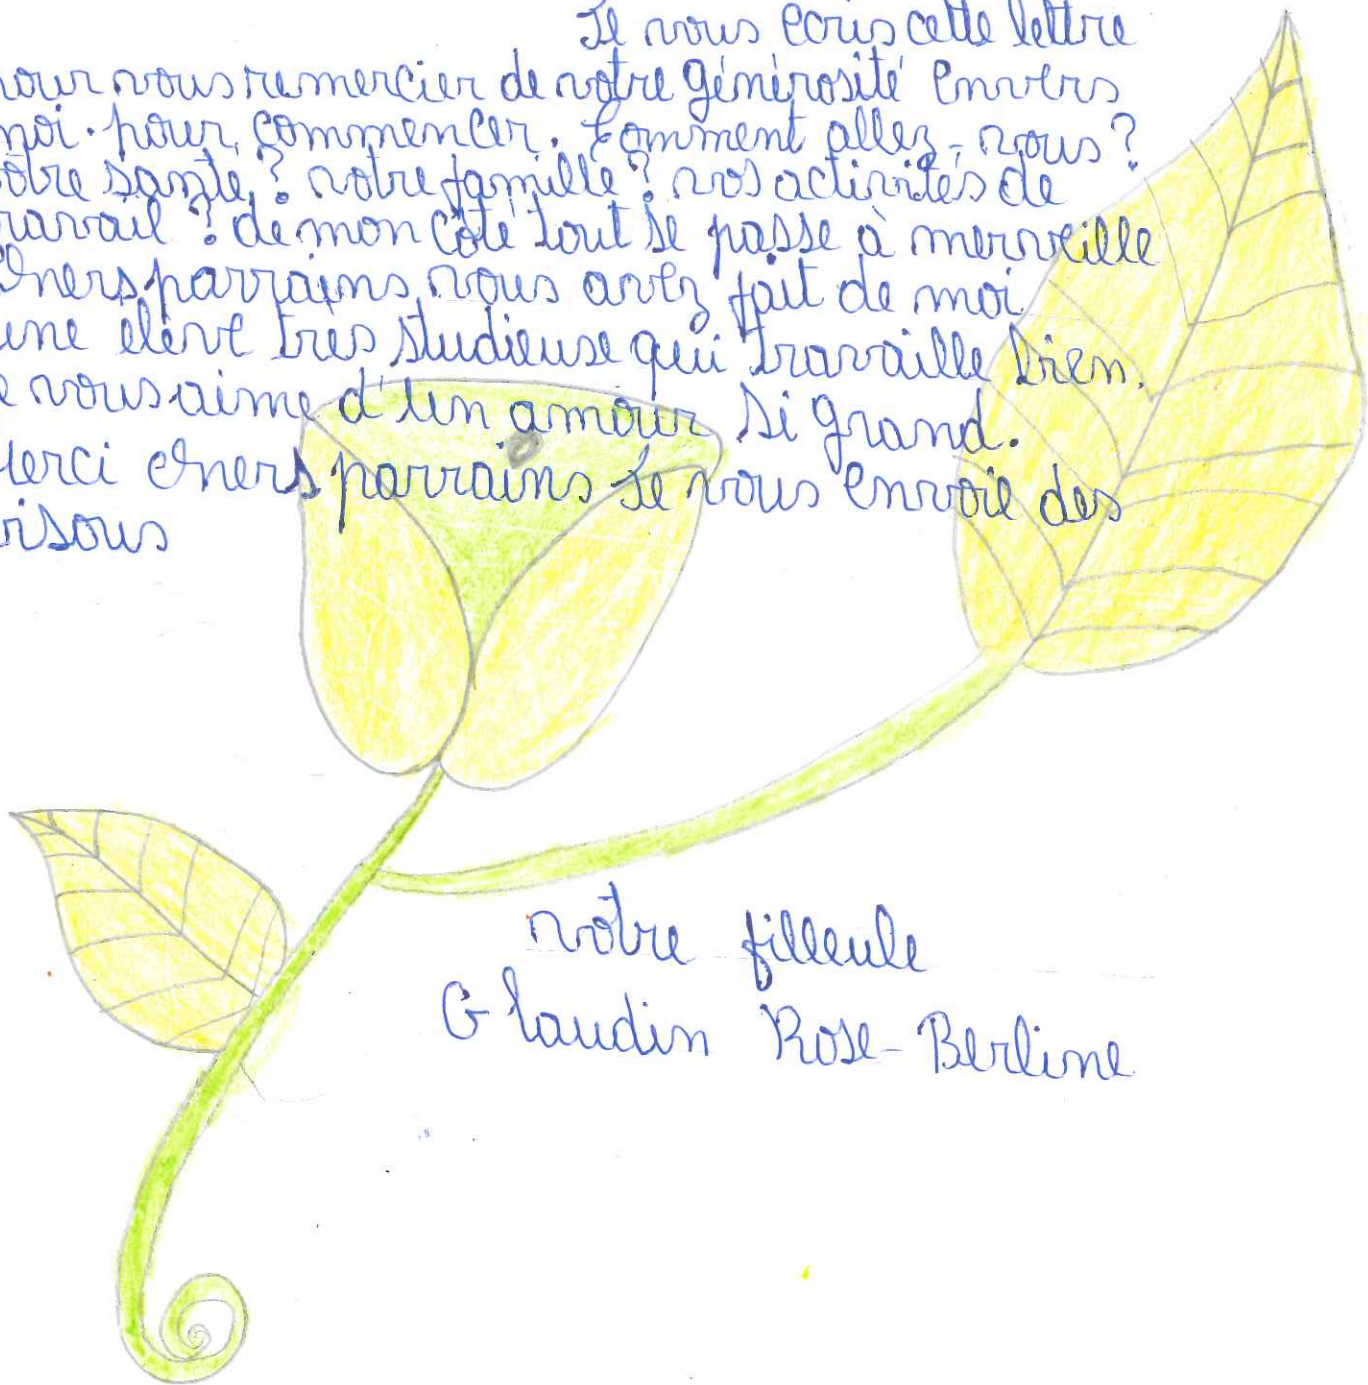 Je vous écris cette lettre
pour vous remercier de votre générosité envers
moi. pour commencer. Comment allez-vous?
votre santé? votre famille? vos activités de
travail? de mon côté tout se passe à merveille
Chers parrains vous avez fait de moi
une élève très studieuse qui travaille bien.
Je vous aime d'un amour si grand.
Merci chers parrains Je vous envoie des
bisous
votre filleule
Glaudin Rose-Berline